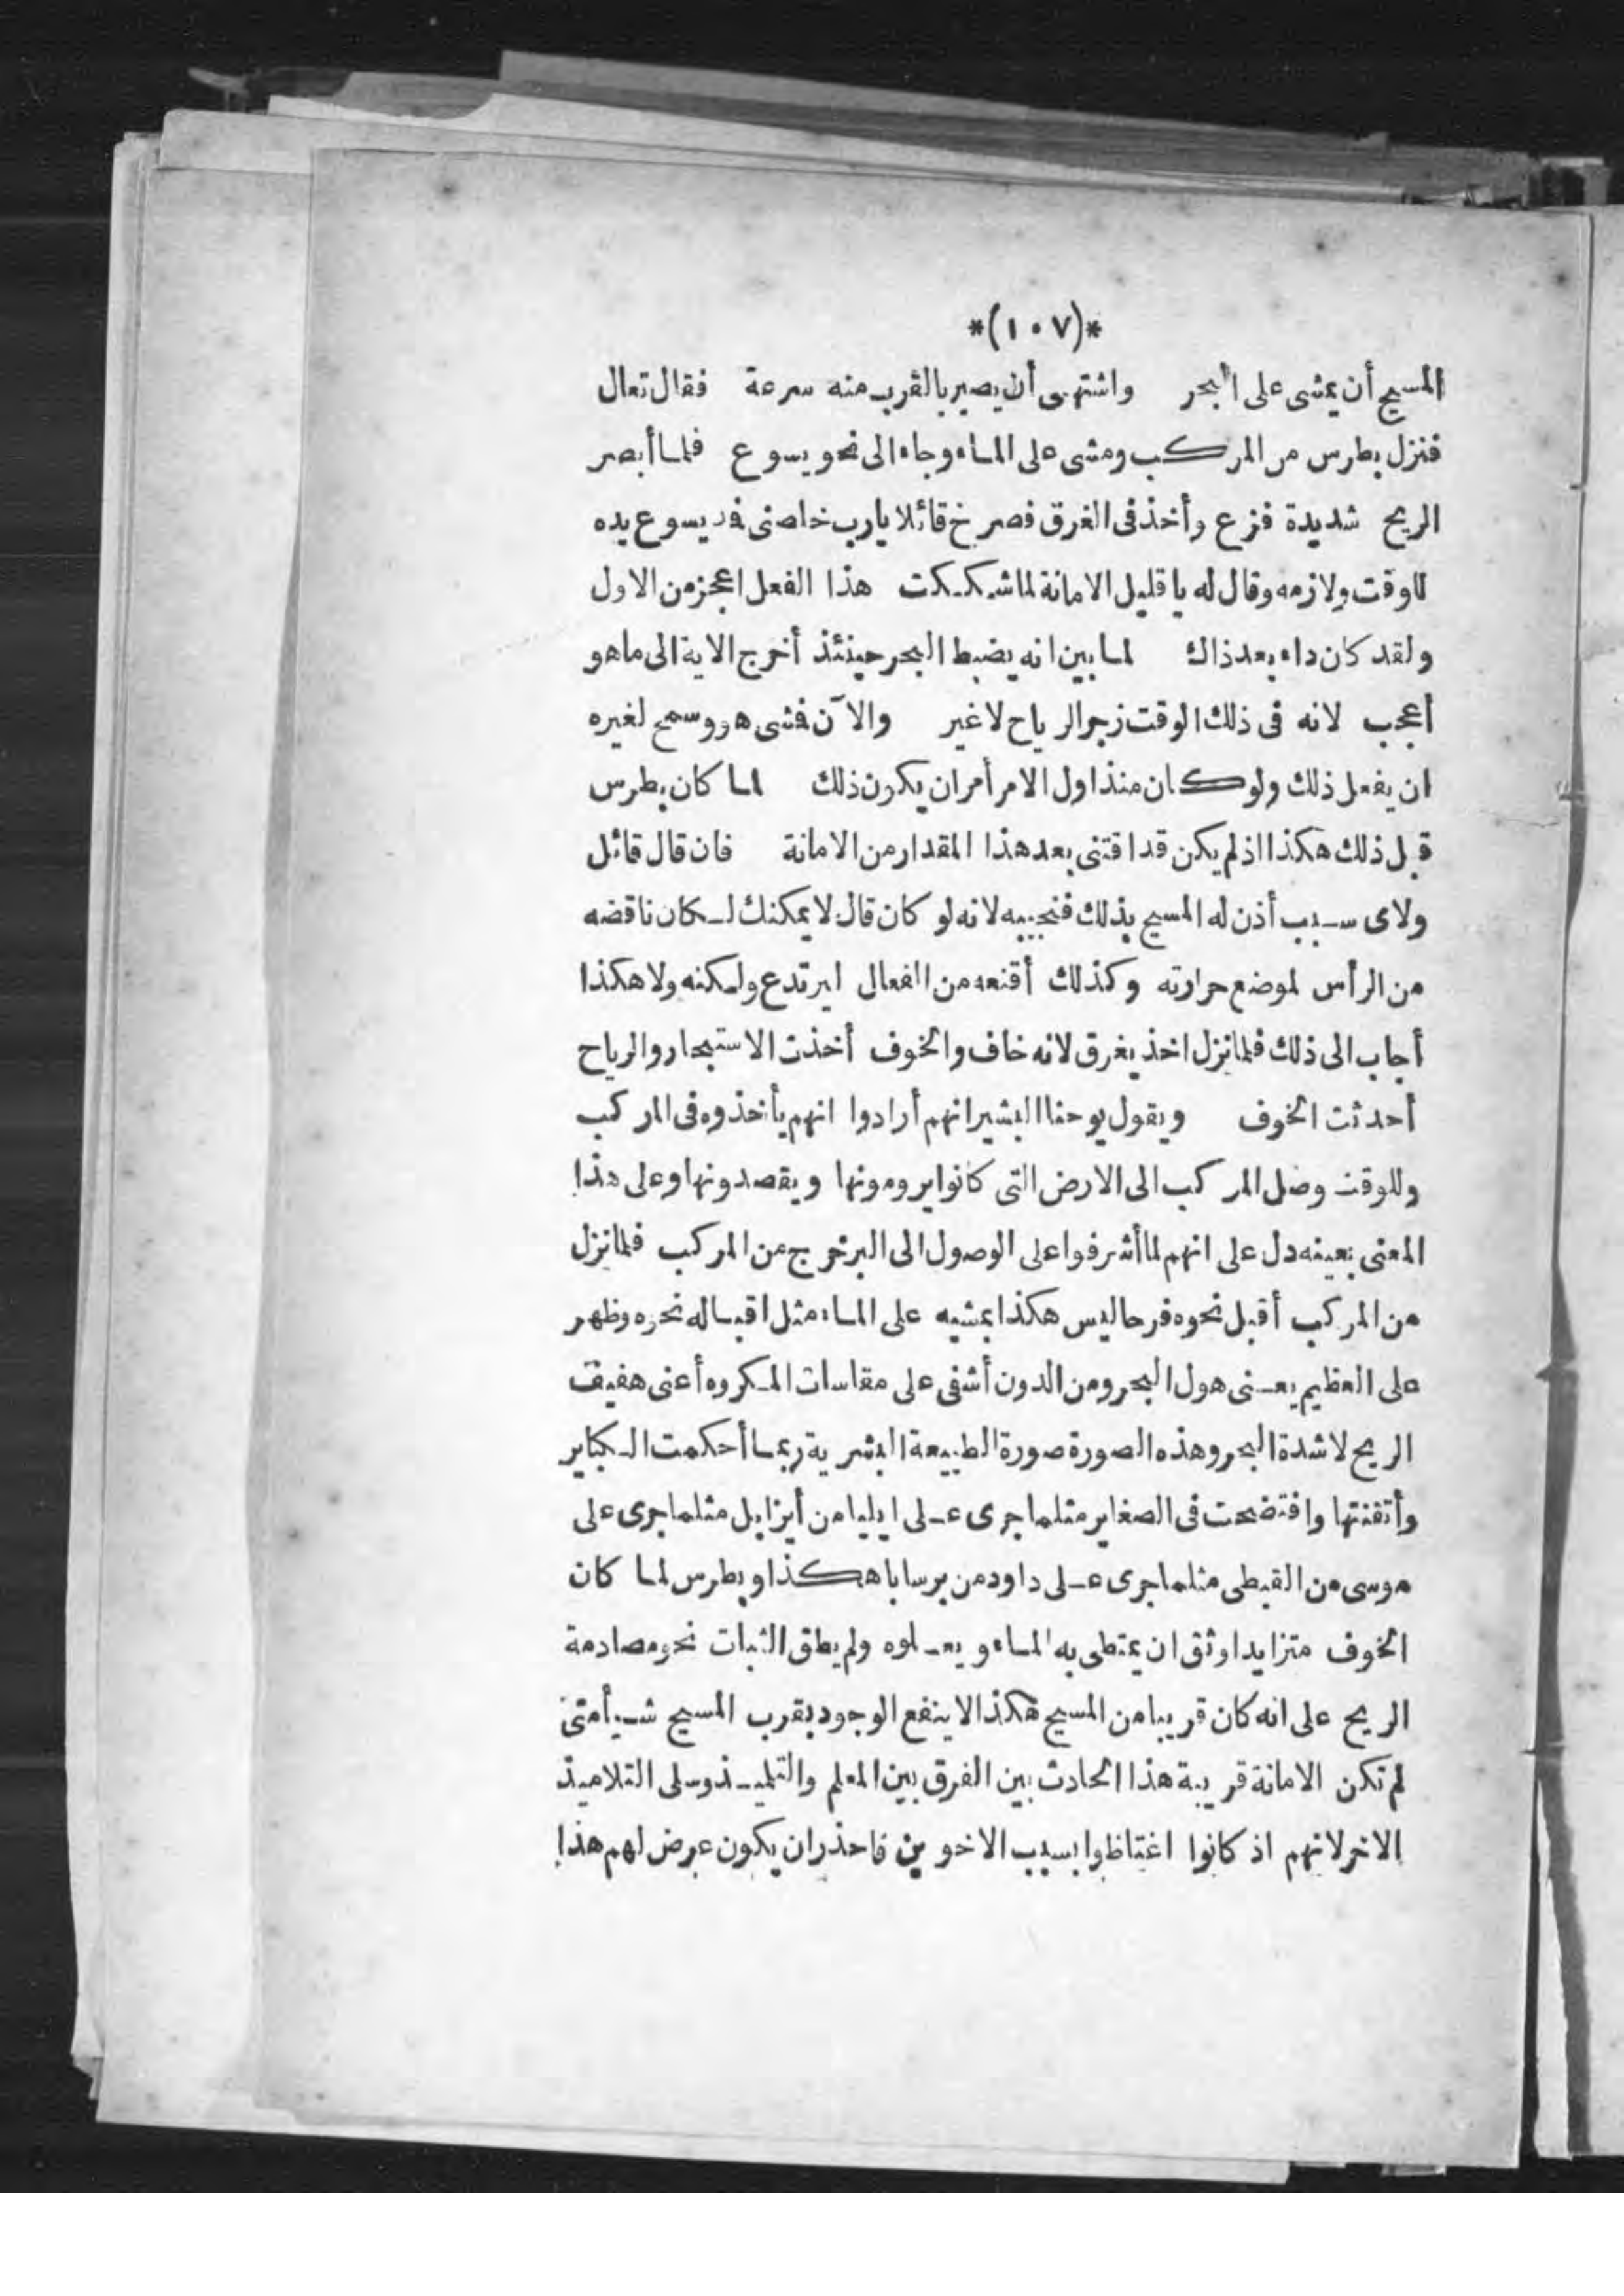 *(١٠٧)*
المسيح أن يمشى على البحر واشتهى أن يصير بالقرب منه سرعة فقال تعال
فنزل بطرس من المركب ومشى على الماء وجاء الى نحو يسوع فلما أبصر
الريح شديدة فزع وأخذ فى الغرق فصرخ قائلا يارب خلصنى فمد يسوع يده
للوقت ولازمه وقال له يا قليل الامانة لماشككت هذا الفعل اعجز من الاول
ولقد كان داء بعد ذاك لما بين انه يضبط البحر حينئذ أخرج الاية الى ماهو
أعجب لانه فى ذلك الوقت زجر الرياح لاغير والآن فمشى هو وسمح لغيره
ان يفعل ذلك ولو كان منذ اول الامر أمر ان يكون ذلك لما كان بطرس
قبل ذلك هكذا اذ لم يكن قد اقتنى بعد هذا المقدار من الامانة فان قال قائل
ولاى سبب أذن له المسيح بذلك فنجيبه لانه لو كان قال لا يمكنك لكان ناقضه
من الرأس لموضع حرارته وكذلك أقنعه من الفعال ليرتدع ولكنه ولا هكذا
أجاب الى ذلك فلما نزل اخذ يغرق لانه خاف والخوف أخذت الاستبحار والرياح
أحدثت الخوف ويقول يوحنا البشير انهم أرادوا انهم يأخذوه فى المركب
وللوقت وصل المركب الى الارض التى كانوا يرومونها ويقصدونها وعلى هذا
المعنى بعينه دل على انهم لما أشرفوا على الوصول الى البر خرج من المركب فلما نزل
من المركب أقبل نحوه فرحا ليس هكذا بمشيه على الماء مثل اقباله نحوه وظهر
على العظيم يعنى هول البحر ومن الدون أشفى على مقاسات المكروه أعنى هفيف
الريح لا شدة البحر وهذه الصورة صورة الطبيعة البشرية ربما أحكمت الكباير
وأتقنتها وافتضحت فى الصغاير مثلما جرى على ايليا من أيزابل مثلما جرى على
موسى من القبطى مثلما جرى على داود من برسابا هكذا وبطرس لما كان
الخوف متزايدا وثق ان يمتطى به الماء ويعلوه ولم يطق الثبات نحو مصادمة
الريح على انه كان قريبا من المسيح هكذا لا ينفع الوجود بقرب المسيح شيأ متى
لم تكن الامانة قريبة هذا الحادث بين الفرق بين المعلم والتلميذ وسلى التلاميذ
الاخر لانهم اذ كانوا اغتاظوا بسبب الاخوين فاحذر ان يكون عرض لهم هذا